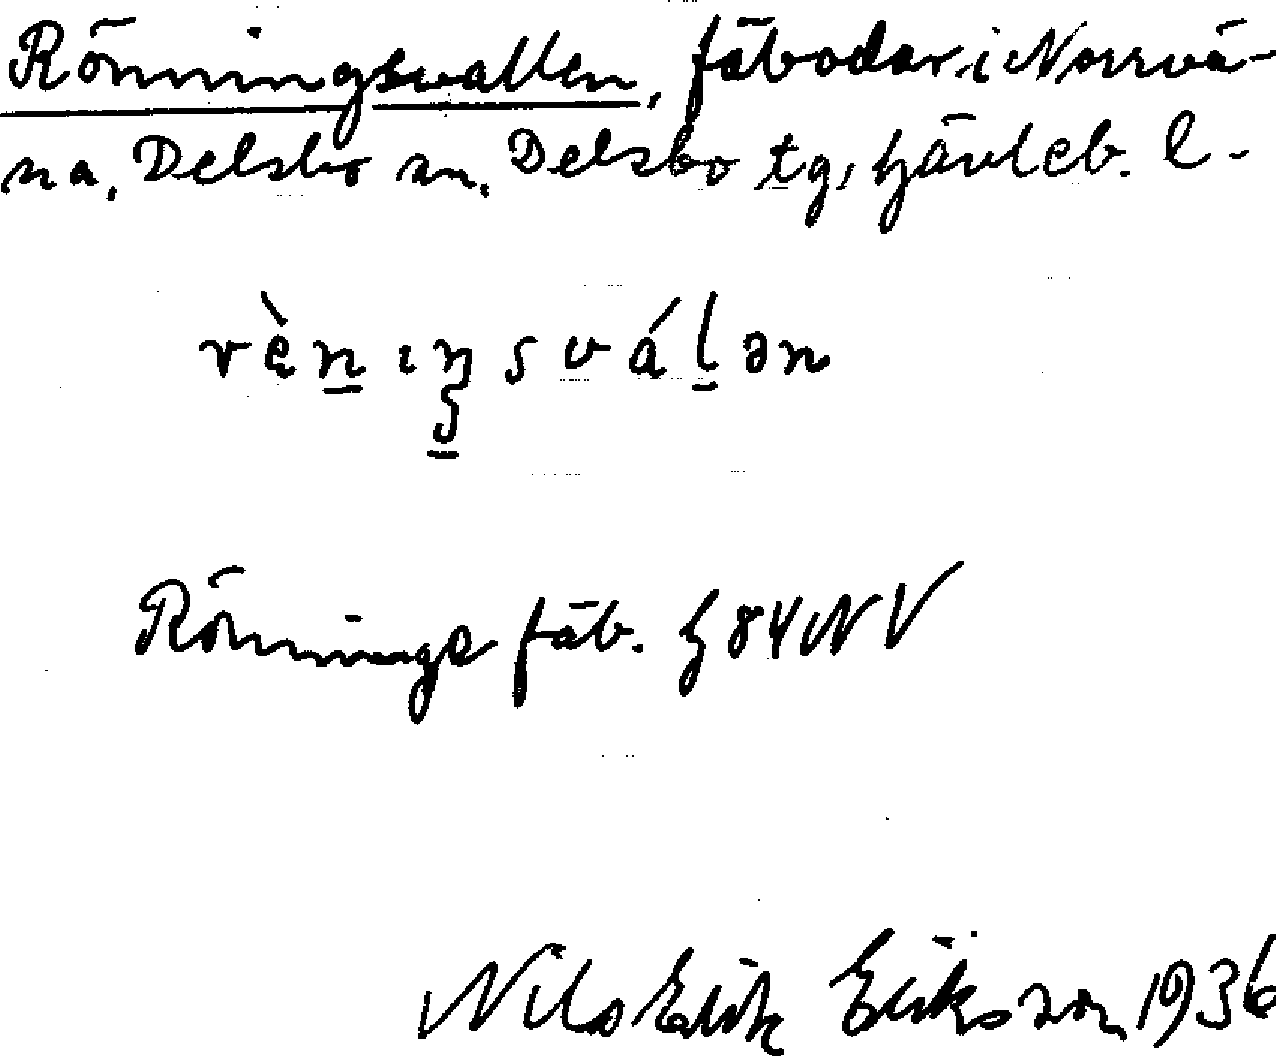 Rönningsvallen, fäbodar i Norrvä-
na, Delsbo sn, Delsbo tg, Gävleb. l.
rènıŋsválən
Rönnings fäb. G 84 NV
Nils Erik Eriksson 1936